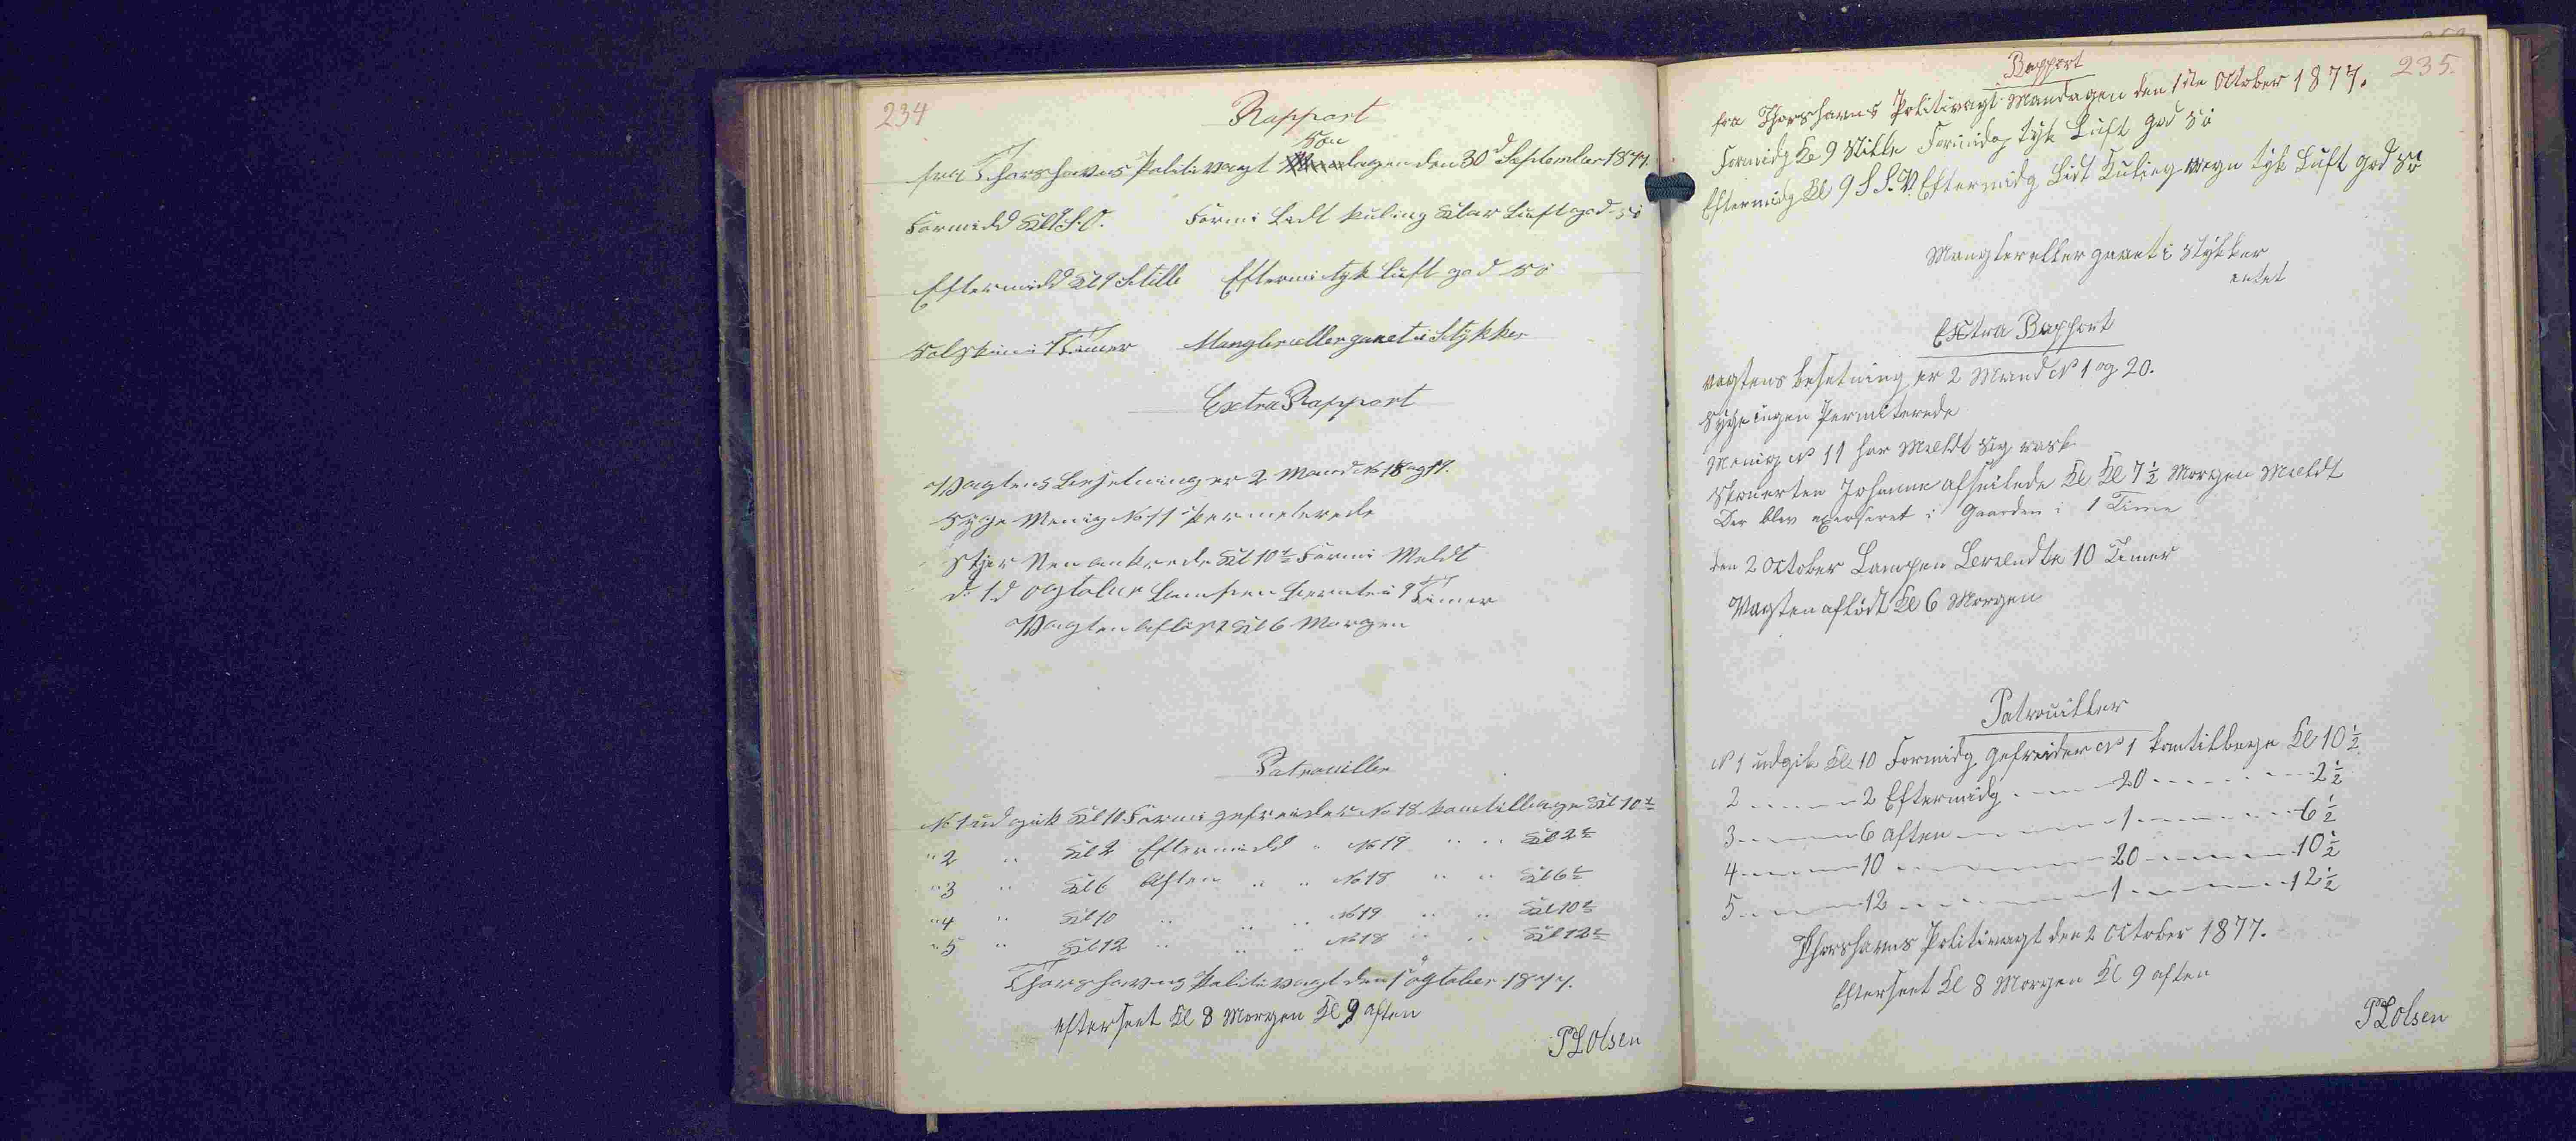 234
Rappart
Søn
fra Thorshavns Politivagt dagen den 30d September 1877.
Formidd Kl 9 S.O. Formi Lidt kuling Klar Luft god Sö
Eftermidd Kl 9 Stille Eftermi tyk Luft god Sö
Solskin i 7 Timer Mangler eller gaaet i Stykker
Extra Rappart
Vagtens Besetning er 2 Mand No 18 og 19.
Syge Menig No 11 permeterede
Skjer Ven ankrede Kl 10½ Formi Meldt
d. 1d Ogtober Lampen Brente i 9 Timer
Vagten Aflöst Kl 6 Morgen
Patrouiller
No 1 udgik Kl 10 Formi gefreider No 18 kom tilbage Kl 10½
" 2 " Kl 2 Eftermidd " No 19 " " Kl 2½
" 3 " Kl 6 Aften " " No 18 " " Kl 6½
" 4 " Kl 10 " " " No 19 " " Kl 10½
" 5 " Kl 12 " " " No 18 " " Kl 12½
Thorshavns Politivagt den 1 Ogtober 1877.
efterseet Kl 8 Morgen Kl 9 aften
PLOlsen
235.
Rapport
fra Thorshavns Politivagt Mandagen den 1ste October 1877.
Formidg Kl 9 Stille Formidg tyk Luft god Sö
Eftermidg Kl 9 S S.V. Eftermidg Lidt Kuling regn tyk Luft god Sö
Mangler eller gaaet i Stykker
entet
Extra Rapport
vagtens besetning er 2 Mand No 1 og 20.
Syge ingen Permiterede
Menig No 11 har Meldt sig rask
Skonerten Johanne afseilede Kl Kl 7½ Morgen Meldt
Der blev exerseret i Gaarden i 1 Time
den 2 October Lampen Brendte 10 Timer
Vagten aflöst Kl 6 Morgen
Patrouiller
No 1 udgik Kl 10 Formidg gefreider No 1 kom tilbage Kl 10½
2 - - - - - 2 Eftermidg - - - - 20 - - - - - - 2½
3 - - - - - 6 aften - - - - - 1 - - - - - - 6½
4 - - - - - 10 - - - - - - - 20 - - - - - - 10½
5 - - - - - 12 - - - - - - - 1 - - - - - - 12½
Thorshavns Politivagt den 2 October 1877.
Efterseet Kl 8 Morgen Kl 9 aften
PLOlsen